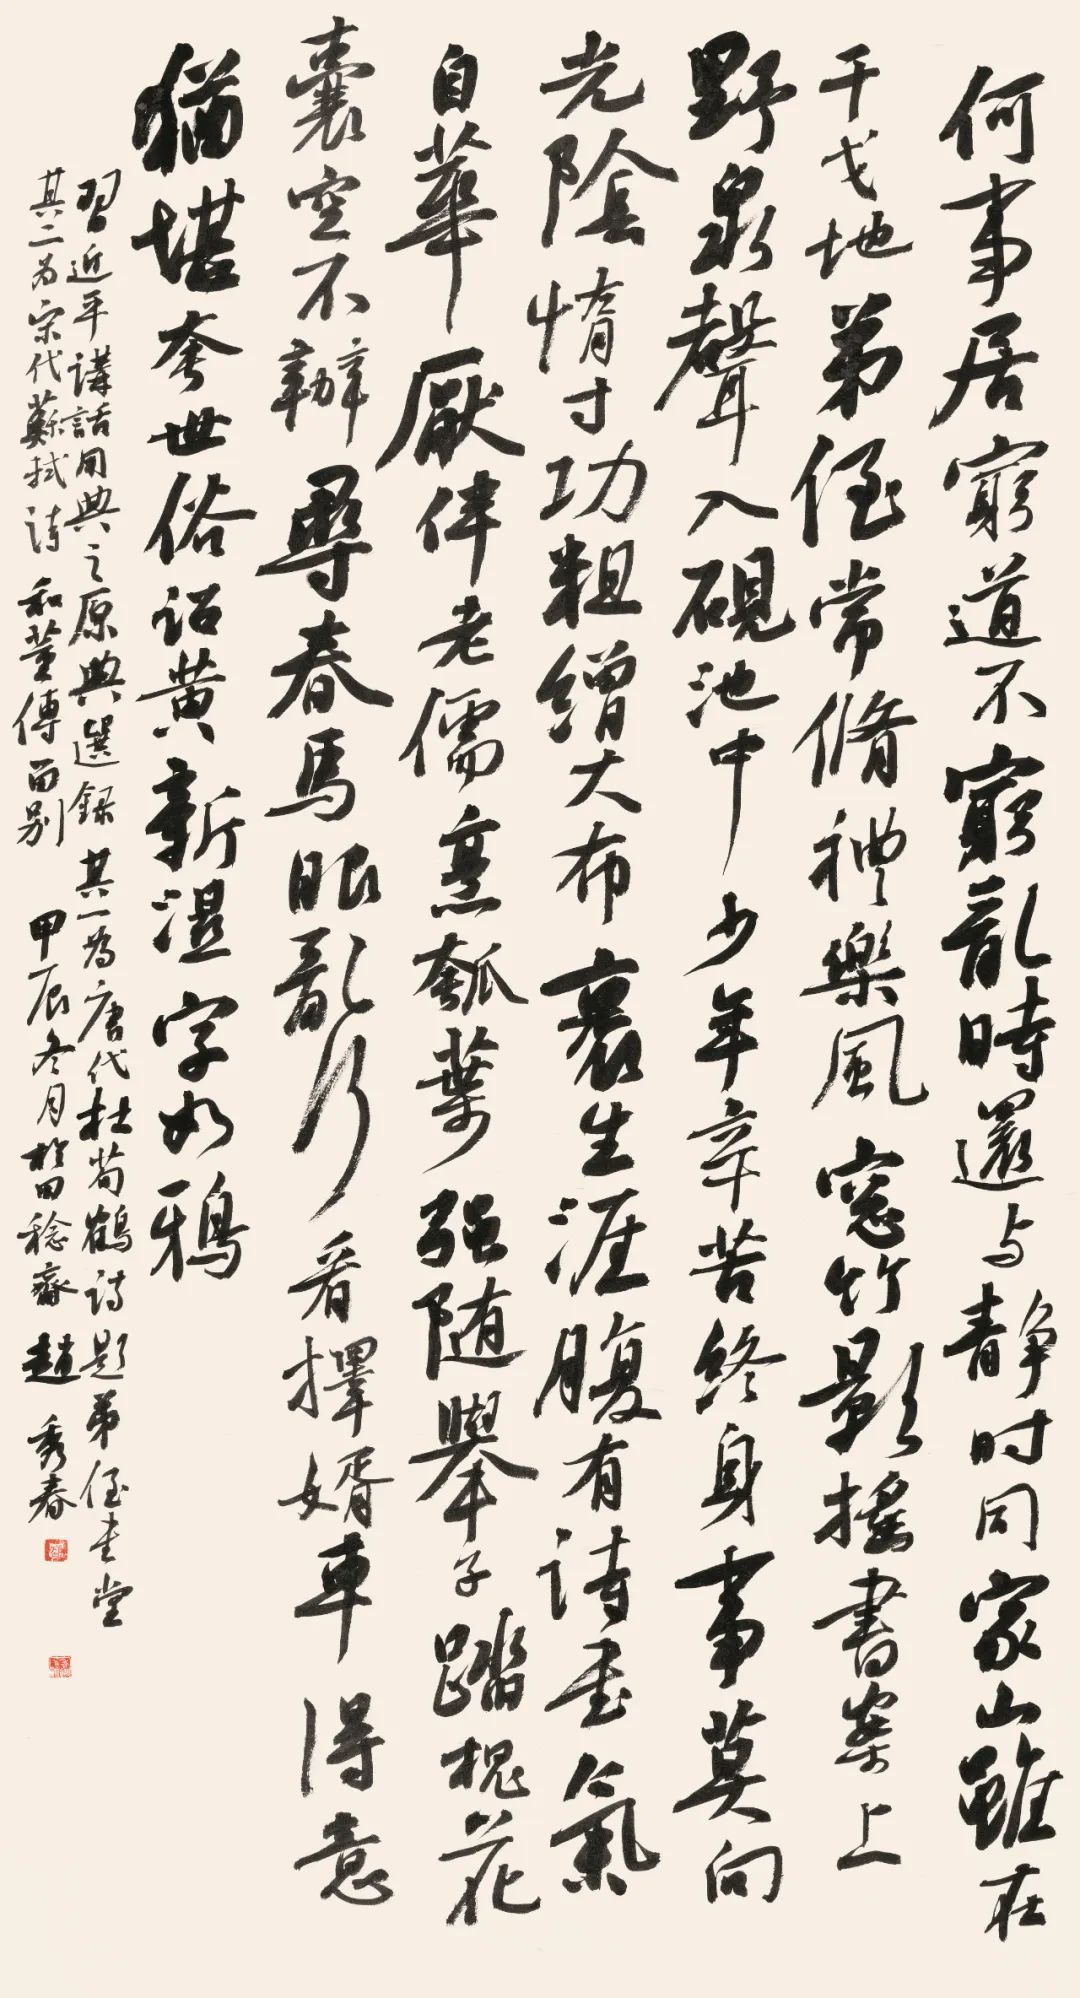 何事居窮道不窮亂時還与静时同家山雖在
干戈地弟侄常脩禮樂風窓竹影揺書案上
野泉聲入硯池中少年辛苦終身事莫向
光陰惰寸功粗繒大布裹生涯腹有詩書氣
自華厭伴老儒烹瓠葉强随舉子踏槐花
囊空不辦尋春馬眼亂行看擇婿車得意
猶堪夸世俗詔黄新濕字如鴉
習近平講話用典之原典選録其一為唐代杜荀鶴詩題弟侄書堂
其二为宋代蘇拭詩和董傳留别甲辰冬月於田稔齋趙秀春